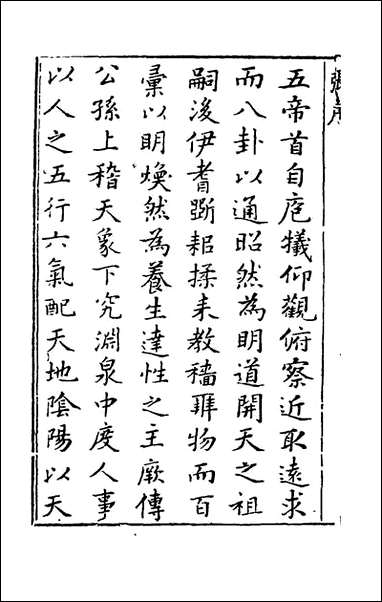 張序
五帝首自庖犧仰觀俯察近取遠求
而八卦以通昭然為明道開天之祖
嗣後伊耆斲耜揉耒教穡辨物而百
彚以明煥然為養生達性之主厥傳
公孫上稽天象下究淵泉中度人事
以人之五行六氣配天地陰陽以天